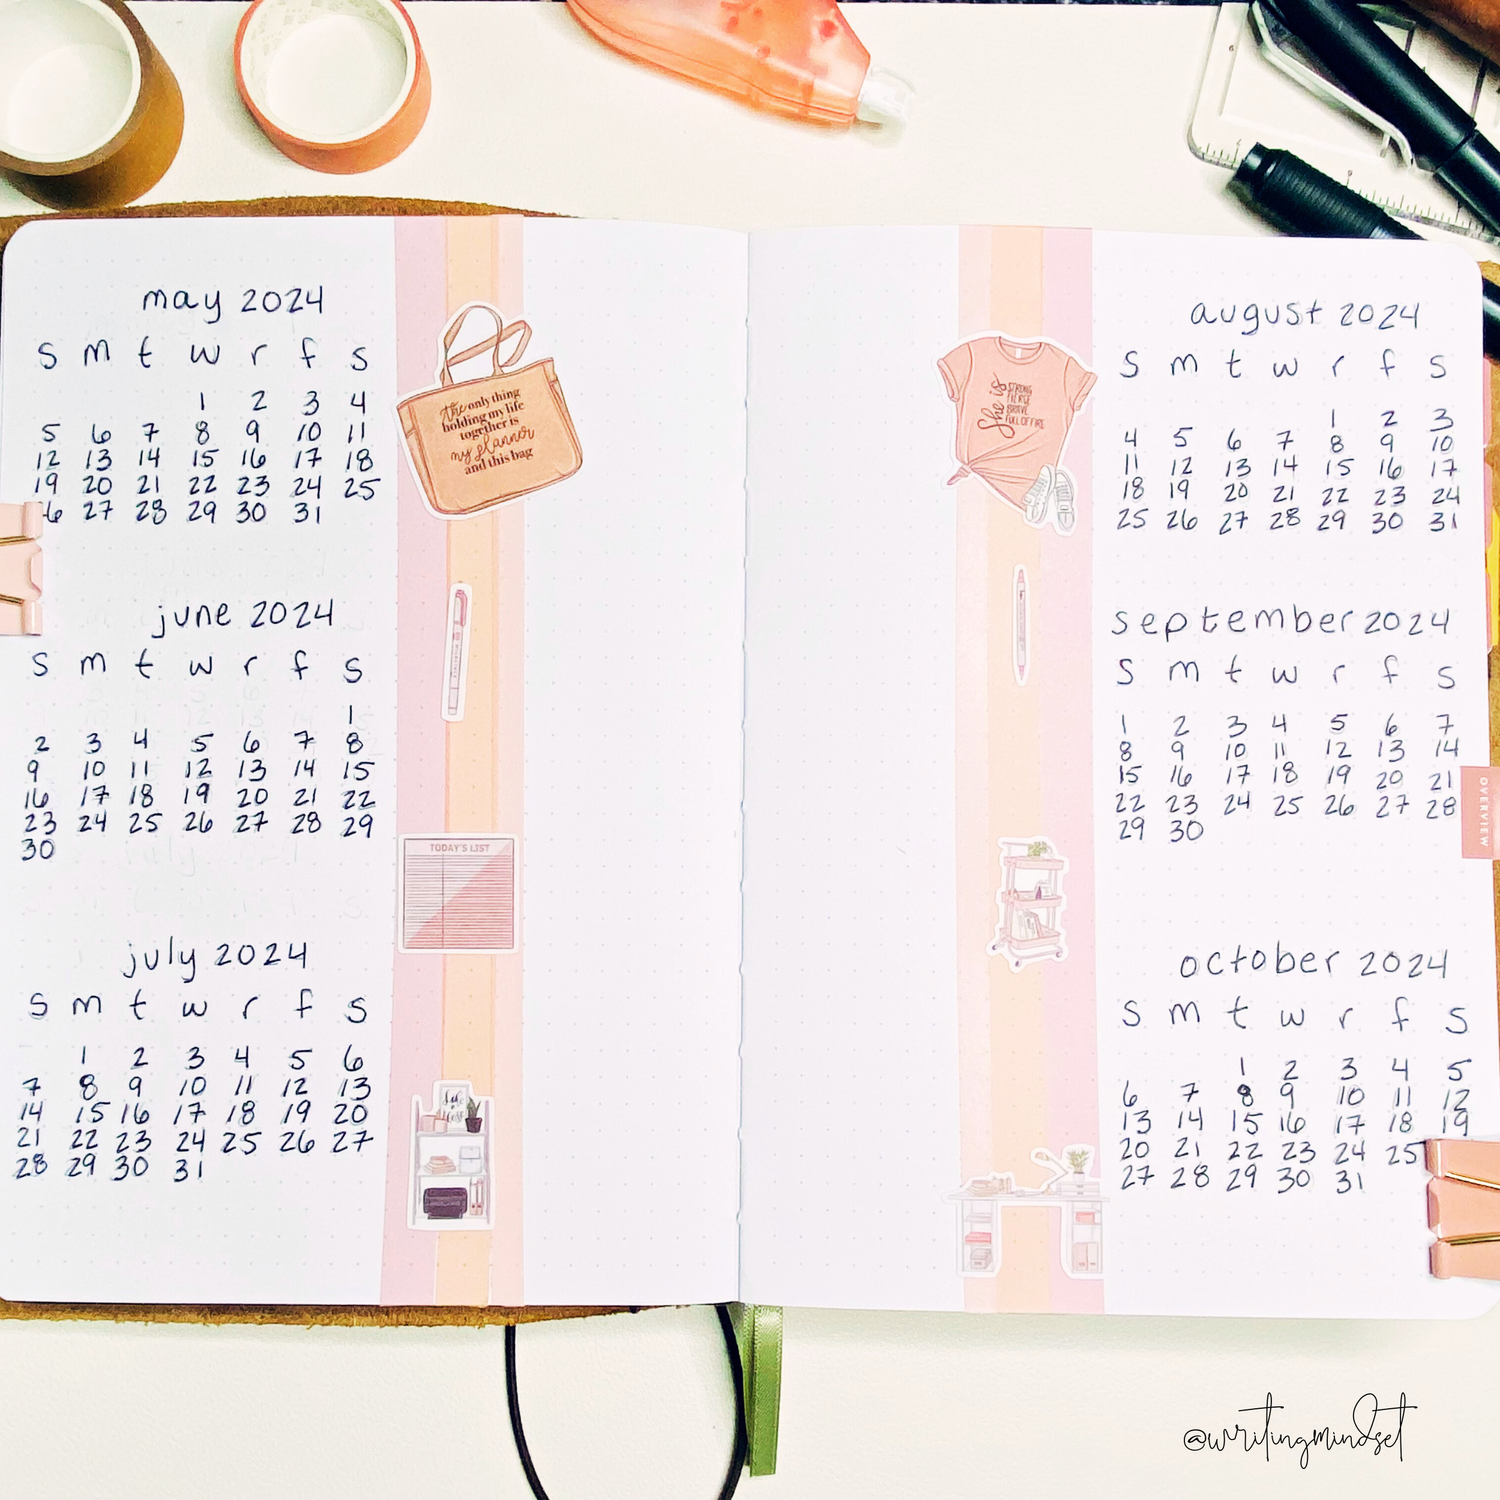 may 2024
s m t w r f s
1 2 3 4
5 6 7 8 9 10 11
12 13 14 15 16 17 18
19 20 21 22 23 24 25
26 27 28 29 30 31
june 2024
s m t w r f s
1
2 3 4 5 6 7 8
9 10 11 12 13 14 15
16 17 18 19 20 21 22
23 24 25 26 27 28 29
30
july 2024
s m t w r f s
1 2 3 4 5 6
7 8 9 10 11 12 13
14 15 16 17 18 19 20
21 22 23 24 25 26 27
28 29 30 31
the only thing
holding my life
together is
my planner
and this bag
TODAY'S LIST
She is
STRONG
FIERCE
BRAVE
FULL OF FIRE
august 2024
s m t w r f s
1 2 3
4 5 6 7 8 9 10
11 12 13 14 15 16 17
18 19 20 21 22 23 24
25 26 27 28 29 30 31
september 2024
s m t w r f s
1 2 3 4 5 6 7
8 9 10 11 12 13 14
15 16 17 18 19 20 21
22 23 24 25 26 27 28
29 30
OVERVIEW
october 2024
s m t w r f s
1 2 3 4 5
6 7 8 9 10 11 12
13 14 15 16 17 18 19
20 21 22 23 24 25
27 28 29 30 31
@writingmindset